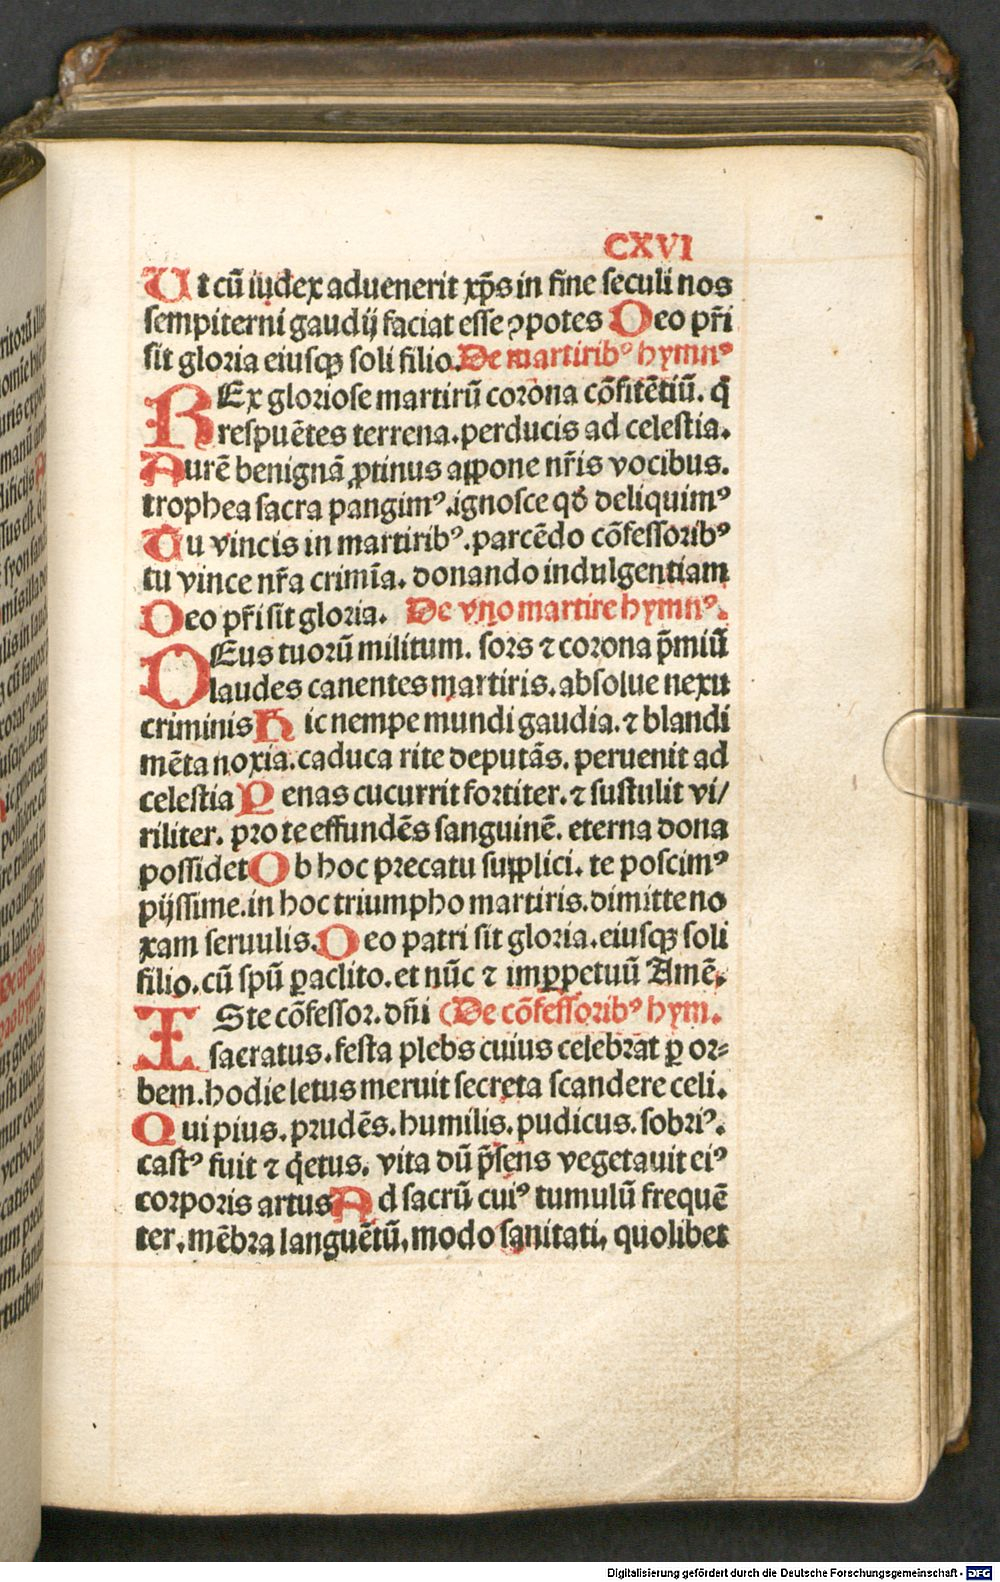 CXVI
Ut cū iudex aduenerit xp̄s in fine seculi nos
sempiterni gaudij faciat esse ꝯpotes Deo pr̄i
sit gloria eiusqꝫ soli filio. De martiribꝰ hymnꝰ
REx gloriose martirū corona cōfitētiū. q̄
respuētes terrena. perducis ad celestia.
Aurē benignā ꝓtinus appone nr̄is vocibus.
trophea sacra pangimꝰ. ignosce qđ deliquimꝰ
Tu vincis in martiribꝰ. parcēdo cōfessoribꝰ
tu vince nr̄a crimīa. donando indulgentiam
Deo pr̄i sit gloria. De vno martire hymnꝰ.
DEus tuorū militum. sors ⁊ corona p̄miū
laudes canentes martiris. absolue nexu
criminis Hic nempe mundi gaudia. ⁊ blandi
mēta noxia. caduca rite deputās. peruenit ad
celestia Penas cucurrit fortiter. ⁊ sustulit vi/
riliter. pro te effundēs sanguinē. eterna dona
possidet Ob hoc precatu supplici. te poscimꝰ
pijssime. in hoc triumpho martiris. dimitte no
xam seruulis. Deo patri sit gloria. eiusqꝫ soli
filio. cū spū ꝑaclito. et nūc ⁊ imꝑpetuū Amē.
ISte cōfessor. dn̄i (De cōfessoribꝰ hym.
sacratus. festa plebs cuius celebrat ꝑ or⸗
bem. hodie letus meruit secreta scandere celi.
Qui pius. prudēs. humilis. pudicus. sobriꝰ.
castꝰ fuit ⁊ q̄etus. vita dū p̄sens vegetauit eiꝰ
corporis artus Ad sacrū cuiꝰ tumulū frequē
ter. mēbra languētū. modo sanitati. quolibet
Digitalisierung gefördert durch die Deutsche Forschungsgemeinschaft - DFG